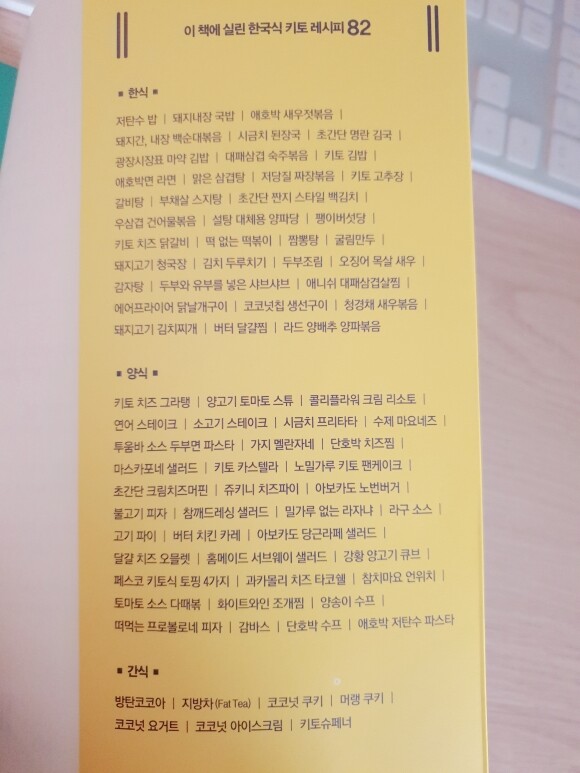 이 책에 실린 한국식 키토 레시피 82
▪ 한식 ▪
저탄수 밥 | 돼지내장 국밥 | 애호박 새우젓볶음 |
돼지간, 내장 백순대볶음 | 시금치 된장국 | 초간단 명란 김국 |
광장시장표 마약 김밥 | 대패삼겹 숙주볶음 | 키토 김밥 |
애호박면 라면 | 맑은 삼겹탕 | 저당질 짜장볶음 | 키토 고추장 |
갈비탕 | 부채살 스지탕 | 초간단 짠지 스타일 백김치 |
우삼겹 건어물볶음 | 설탕 대체용 양파당 | 팽이버섯당 |
키토 치즈 닭갈비 | 떡 없는 떡볶이 | 짬뽕탕 | 굴림만두 |
돼지고기 청국장 | 김치 두루치기 | 두부조림 | 오징어 목살 새우 |
감자탕 | 두부와 유부를 넣은 샤브샤브 | 애니쉬 대패삼겹살찜 |
에어프라이어 닭날개구이 | 코코넛칩 생선구이 | 청경채 새우볶음 |
돼지고기 김치찌개 | 버터 달걀찜 | 라드 양배추 양파볶음
▪ 양식 ▪
키토 치즈 그라탱 | 양고기 토마토 스튜 | 콜리플라워 크림 리소토 |
연어 스테이크 | 소고기 스테이크 | 시금치 프리타타 | 수제 마요네즈 |
투움바 소스 두부면 파스타 | 가지 멜란자네 | 단호박 치즈찜 |
마스카포네 샐러드 | 키토 카스텔라 | 노밀가루 키토 팬케이크 |
초간단 크림치즈머핀 | 쥬키니 치즈파이 | 아보카도 노번버거 |
불고기 피자 | 참깨드레싱 샐러드 | 밀가루 없는 라자냐 | 라구 소스 |
고기 파이 | 버터 치킨 카레 | 아보카도 당근라페 샐러드 |
달걀 치즈 오믈렛 | 홈메이드 서브웨이 샐러드 | 강황 양고기 큐브 |
페스코 키토식 토핑 4가지 | 과카몰리 치즈 타코쉘 | 참치마요 언위치 |
토마토 소스 다때볶 | 화이트와인 조개찜 | 양송이 수프 |
떠먹는 프로볼로네 피자 | 감바스 | 단호박 수프 | 애호박 저탄수 파스타
▪ 간식 ▪
방탄코코아 | 지방차(Fat Tea) | 코코넛 쿠키 | 머랭 쿠키 |
코코넛 요거트 | 코코넛 아이스크림 | 키토슈페너